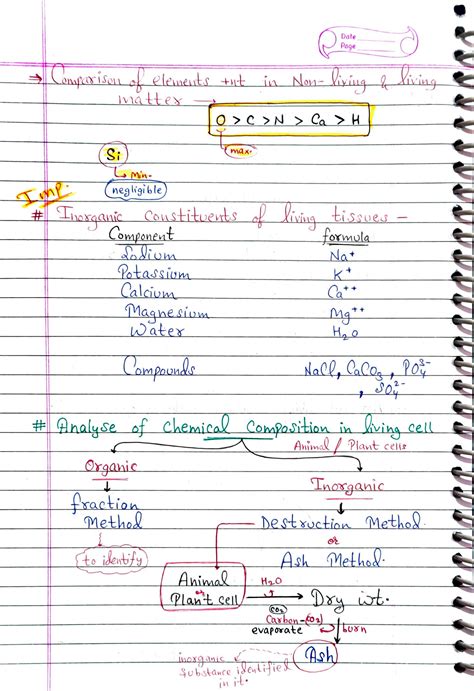 Date
Page
→ Comparison of elements +nt in Non-living & living
matter →
O > C > N > Ca > H
max.
Si
→ Min.
negligible
Imp.
# Inorganic constituents of living tissues -
Component formula
Sodium Na⁺
Potassium K⁺
Calcium Ca⁺⁺
Magnesium Mg⁺⁺
Water H₂O
Compounds NaCl, CaCO₃, PO₄³⁻
, SO₄²⁻
# Analyse of Chemical Composition in living cell
Animal / Plant cells
Organic
Inorganic
fraction
Method
Destruction Method.
or
Ash Method.
to identify
Animal
or
Plant cell
H₂O
Dry wt.
CO₂
Carbon-(CO₂)
evaporate
burn
Ash
inorganic
substance identified
in it.